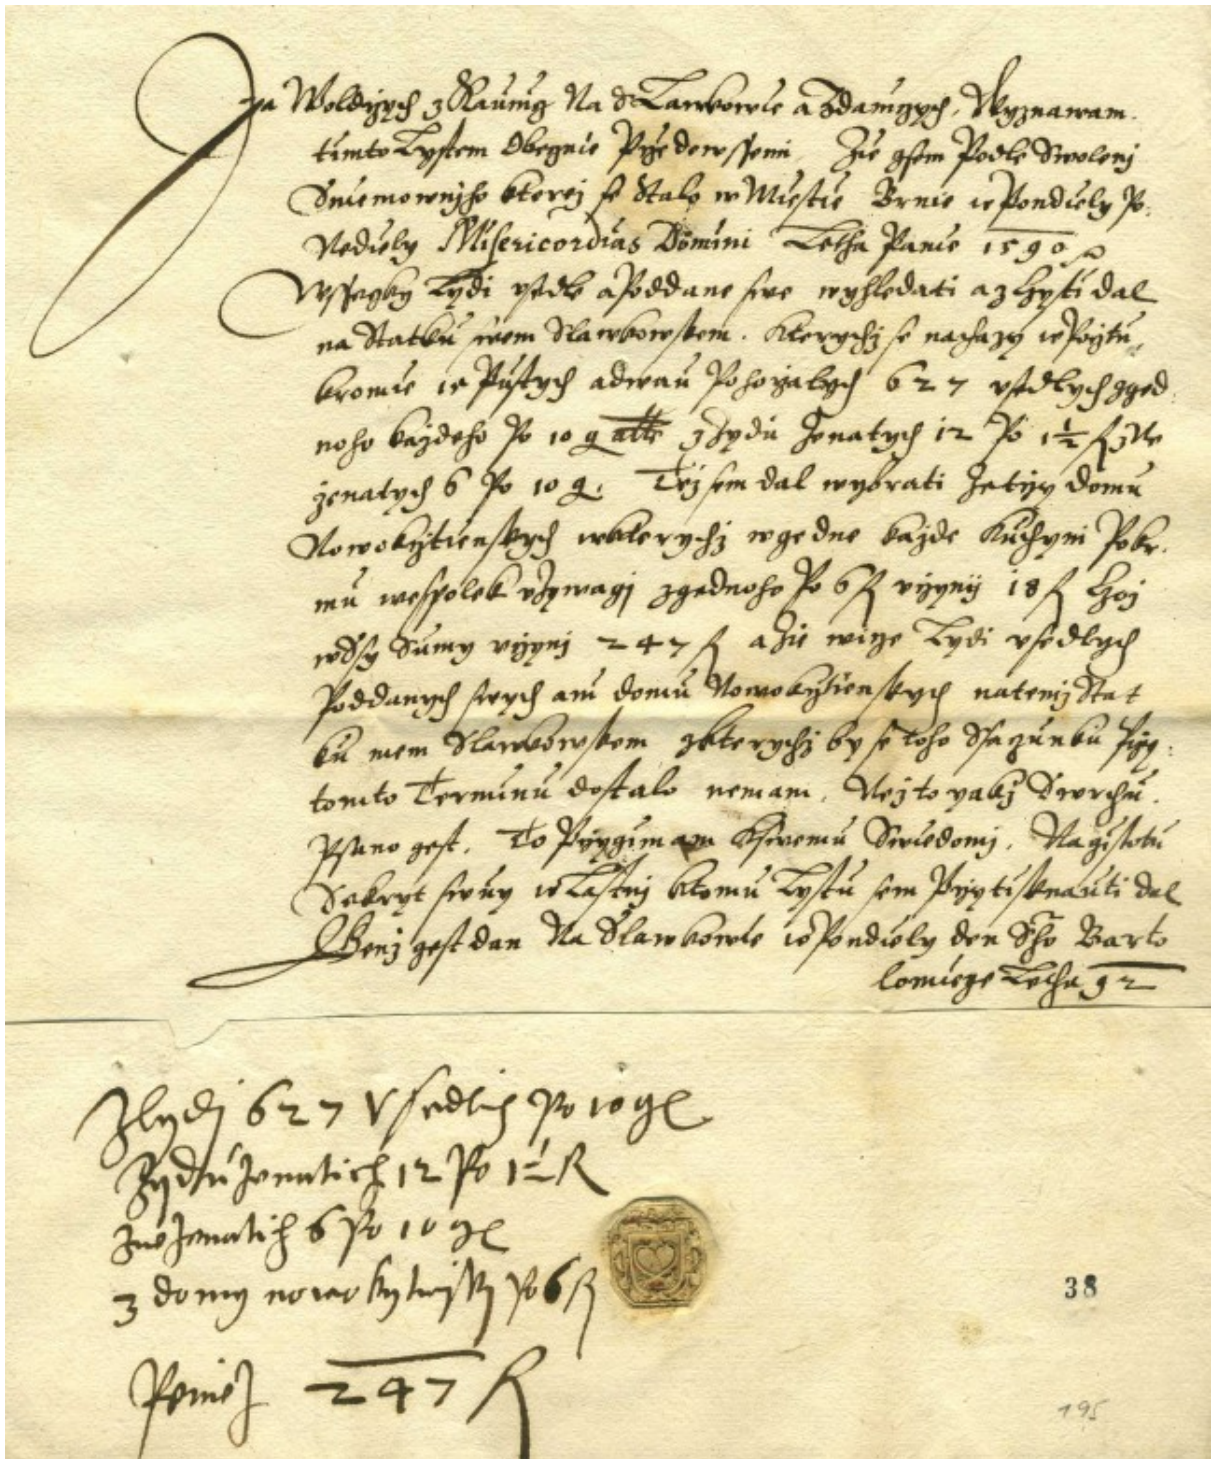 Ja Woldrzych z Kaunicz Na Slawkowie a Zdaniczych, Wyznawam
timto Lystem Obeznie Przedewssemi Zie gsem Podle Swolenj
Sniemownjho kterez se Stalo w Miestie Brnie w Pondiely Po
Nedieli Misericordias Domini Letha Panie 1590
Wssezky Lydi vsedle a Poddane swe wyhledati a zczysti dal
na Statku swem Slawkowskem. Kterychz se nachazy w Pocztu
kromie w Pustych a dwau Pohorzalych 627 vsedlych zged
noho kazdeho Po 10 g z Zydu Zenatych 12 Po 1½ R z Ne
zenatych 6 Po 10 g. Tez sem dal wybrati Ze trzy domu
Nowokrztienskych w kterychz w gedne kazde Kuchyni Pokr
mu wespolek vzywagj z gednoho Po 6 R vczynij 18 R Czoz
w Sumy vczynj 247 R a Zie wicze Lydi vsedlych
Poddanych swych ani domu Nowokrztienskych na temz Stat
ku mem Slawkowskem z kterychz by se toho Ssaczunku Przy
tomto Terminu dostalo nemam. Nez to yakz Swrchu
Psano gest. To Przygimam k swemu Swiedomj. Na gistotu
Sekryt swuy wlastnj k tomu Lystu sem Przytisknauti dal
Genz gest dan Na Slawkowie w Pondiely den Sho Barto
lomiege Letha 92
Z lydj 627 Vsedlich po 10 g
Zydu zenatich 12 Po 1½ R
z nezenatich 6 Po 10 g
3 domy nowokrztinsky po 6 R
Peniez 247 R
38
195